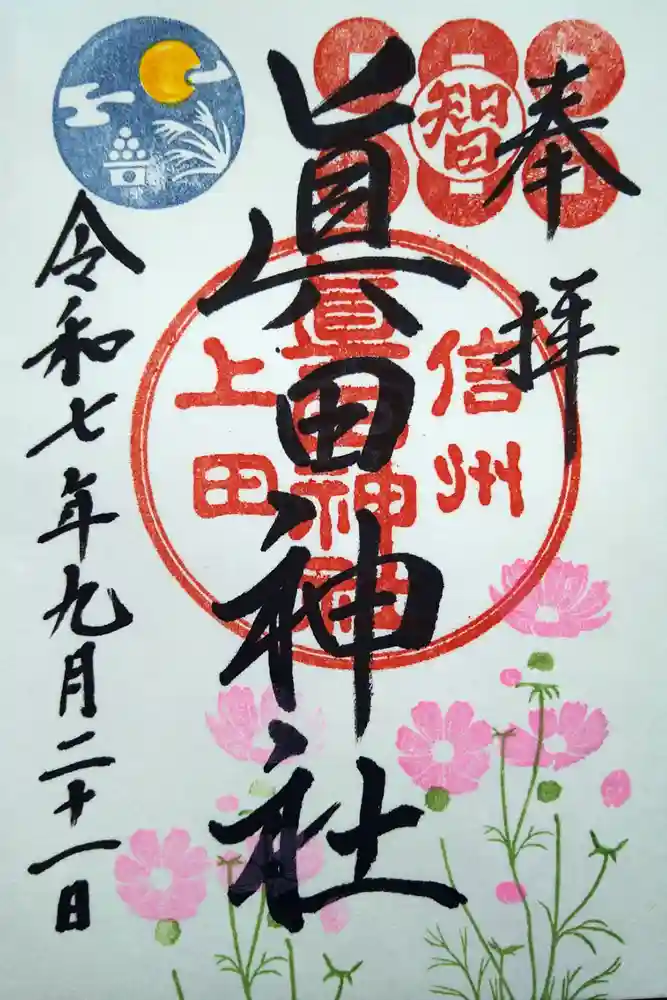 奉拝
智
眞田神社
信州
上田
眞田神社
令和七年九月二十一日